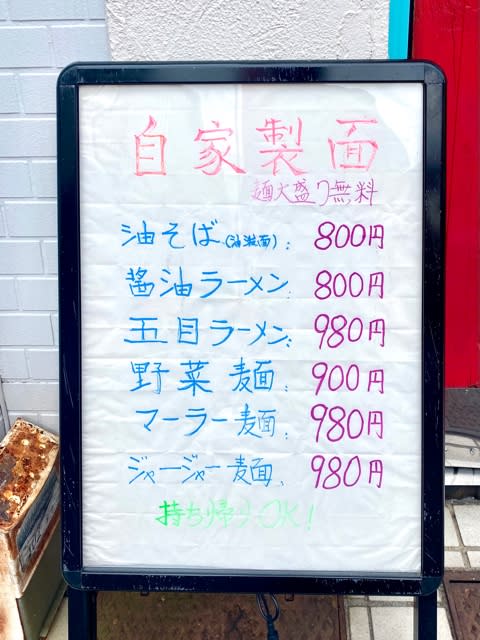 自家製面
麺大盛り無料
油そば(油溌面): 800円
醤油ラーメン: 800円
五目ラーメン: 980円
野菜麺: 900円
マーラー麺: 980円
ジャージャー麺: 980円
持ち帰りOK!